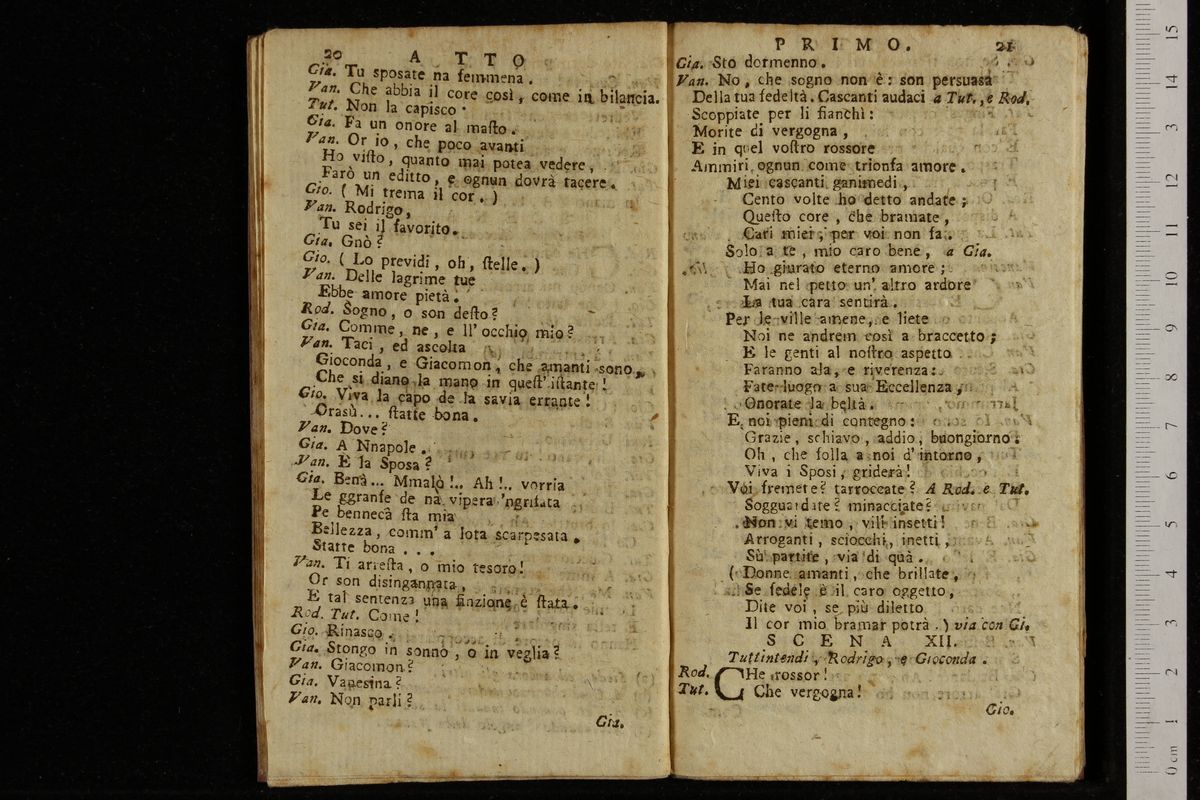 20 A T T O
Gia. Tu sposate na femmena.
Van. Che abbia il core così, come in bilancia.
Tut. Non la capisco.
Gia. Fa un onore al maſto.
Van. Or io, che poco avanti
Ho viſto, quanto mai potea vedere,
Farò un editto, e ognun dovrà tacere.
Gio. ( Mi trema il cor. )
Van. Rodrigo,
Tu sei il favorito.
Gia. Gnò?
Gio. ( Lo previdi, oh, ſtelle. )
Van. Delle lagrime tue
Ebbe amore pietà.
Rod. Sogno, o son deſto?
Gia. Comme, ne, e ll' occhio mio?
Van. Taci, ed ascolta
Gioconda, e Giacomon, che amanti sono,
Che si diano la mano in queſt' iſtante!
Gio. Viva la capo de la savia errante!
Orasù... ſtatte bona.
Van. Dove?
Gia. A Nnapole.
Van. E la Sposa?
Gia. Benà... Mmalo!.. Ah!.. vorria
Le ggranfe de na vipera 'ngrifata
Pe bennecà ſta mia
Bellezza, comm' a lota scarpesata.
Statte bona...
Van. Ti arreſta, o mio tesoro!
Or son disingannata,
E tal sentenza una finzione è ſtata.
Rod. Tut. Come!
Gio. Rinasco.
Gia. Stongo in sonno, o in veglia?
Van. Giacomon?
Gia. Vanesina?
Van. Non parli?
Gia.
P R I M O. 21
Gia. Sto dormenno.
Van. No, che sogno non è: son persuasa
Della tua fedeltà. Cascanti audaci a Tut., e Rod.
Scoppiate per li fianchi:
Morite di vergogna,
E in quel voſtro rossore
Ammiri ognun come trionfa amore.
Miei cascanti ganimedi,
Cento volte ho detto andate;
Queſto core, che bramate,
Cari miei, per voi non fa.
Solo a te, mio caro bene, a Gia.
Ho giurato eterno amore;
Mai nel petto un' altro ardore
La tua cara sentirà.
Per le ville amene, e liete
Noi ne andrem così a braccetto;
E le genti al noſtro aspetto
Faranno ala, e riverenza:
Fate luogo a sua Eccellenza,
Onorate la beltà.
E noi pieni di contegno:
Grazie, schiavo, addio, buongiorno:
Oh, che folla a noi d' intorno,
Viva i Sposi, griderà!
Voi fremete? tarroccate? A Rod. e Tut.
Sogguardate? minacciate?
Non vi temo, vili insetti!
Arroganti, sciocchi, inetti,
Sù partite, via di quà.
( Donne amanti, che brillate,
Se fedele è il caro oggetto,
Dite voi, se più diletto
Il cor mio bramar potrà. ) via con Gi.
S C E N A XII.
Tuttintendi, Rodrigo, e Gioconda.
Rod. CHe rossor!
Tut. Che vergogna!
Gio.